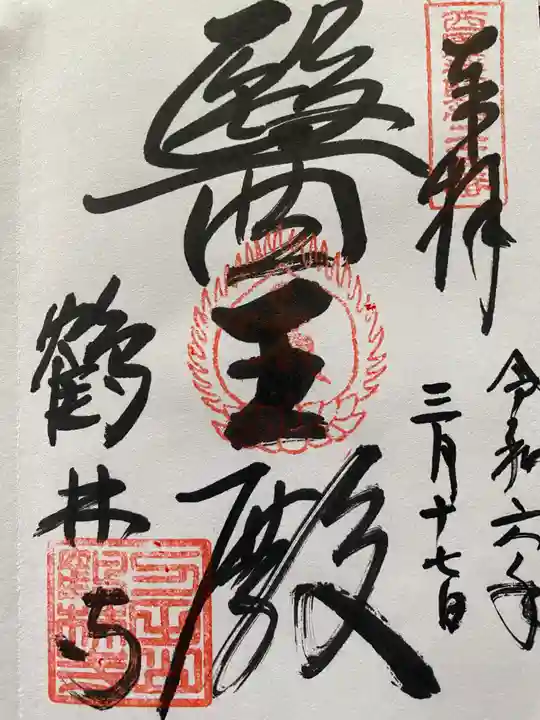 奉拝
令和六年
三月十七日
醫王殿
鶴林寺